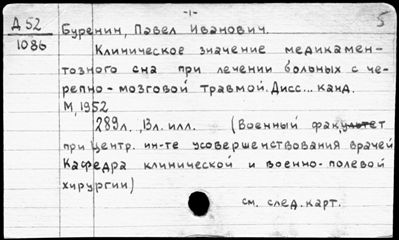 -1-
Д 52
1086
5
Буренин, Павел Иванович.
Клиническое значение медикамен-
тозного сна при лечении больных с че-
репно-мозговой травмой. Дисс... канд.
М, 1952
289л., 13л. илл. (Военный факультет
при центр. ин-те усовершенствования врачей
Кафедра клинической и военно-полевой
хирургии)
см. след. карт.